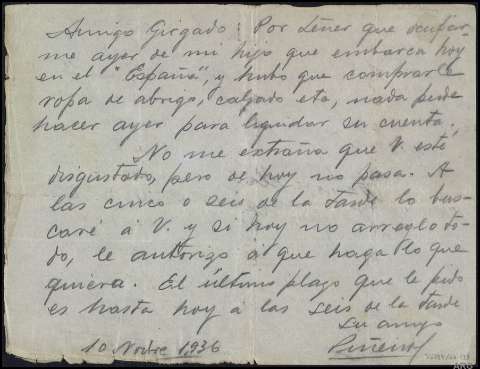 Amigo Girgado: Por tener que ocupar-
me ayer de mi hijo que embarca hoy
en el "España", y hubo que comprarle
ropa de abrigo, calzado etc, nada pude
hacer ayer para liquidar su cuenta.
No me extraña que V. esté
disgustado, pero de hoy no pasa. A
las cinco o seis de la tarde lo bus-
caré á V. y si hoy no arreglo to-
do, le autorizo á que haga lo que
quiera. El último plazo que le pido
es hasta hoy a las seis de la tarde
Su amigo
10 Novbre 1936